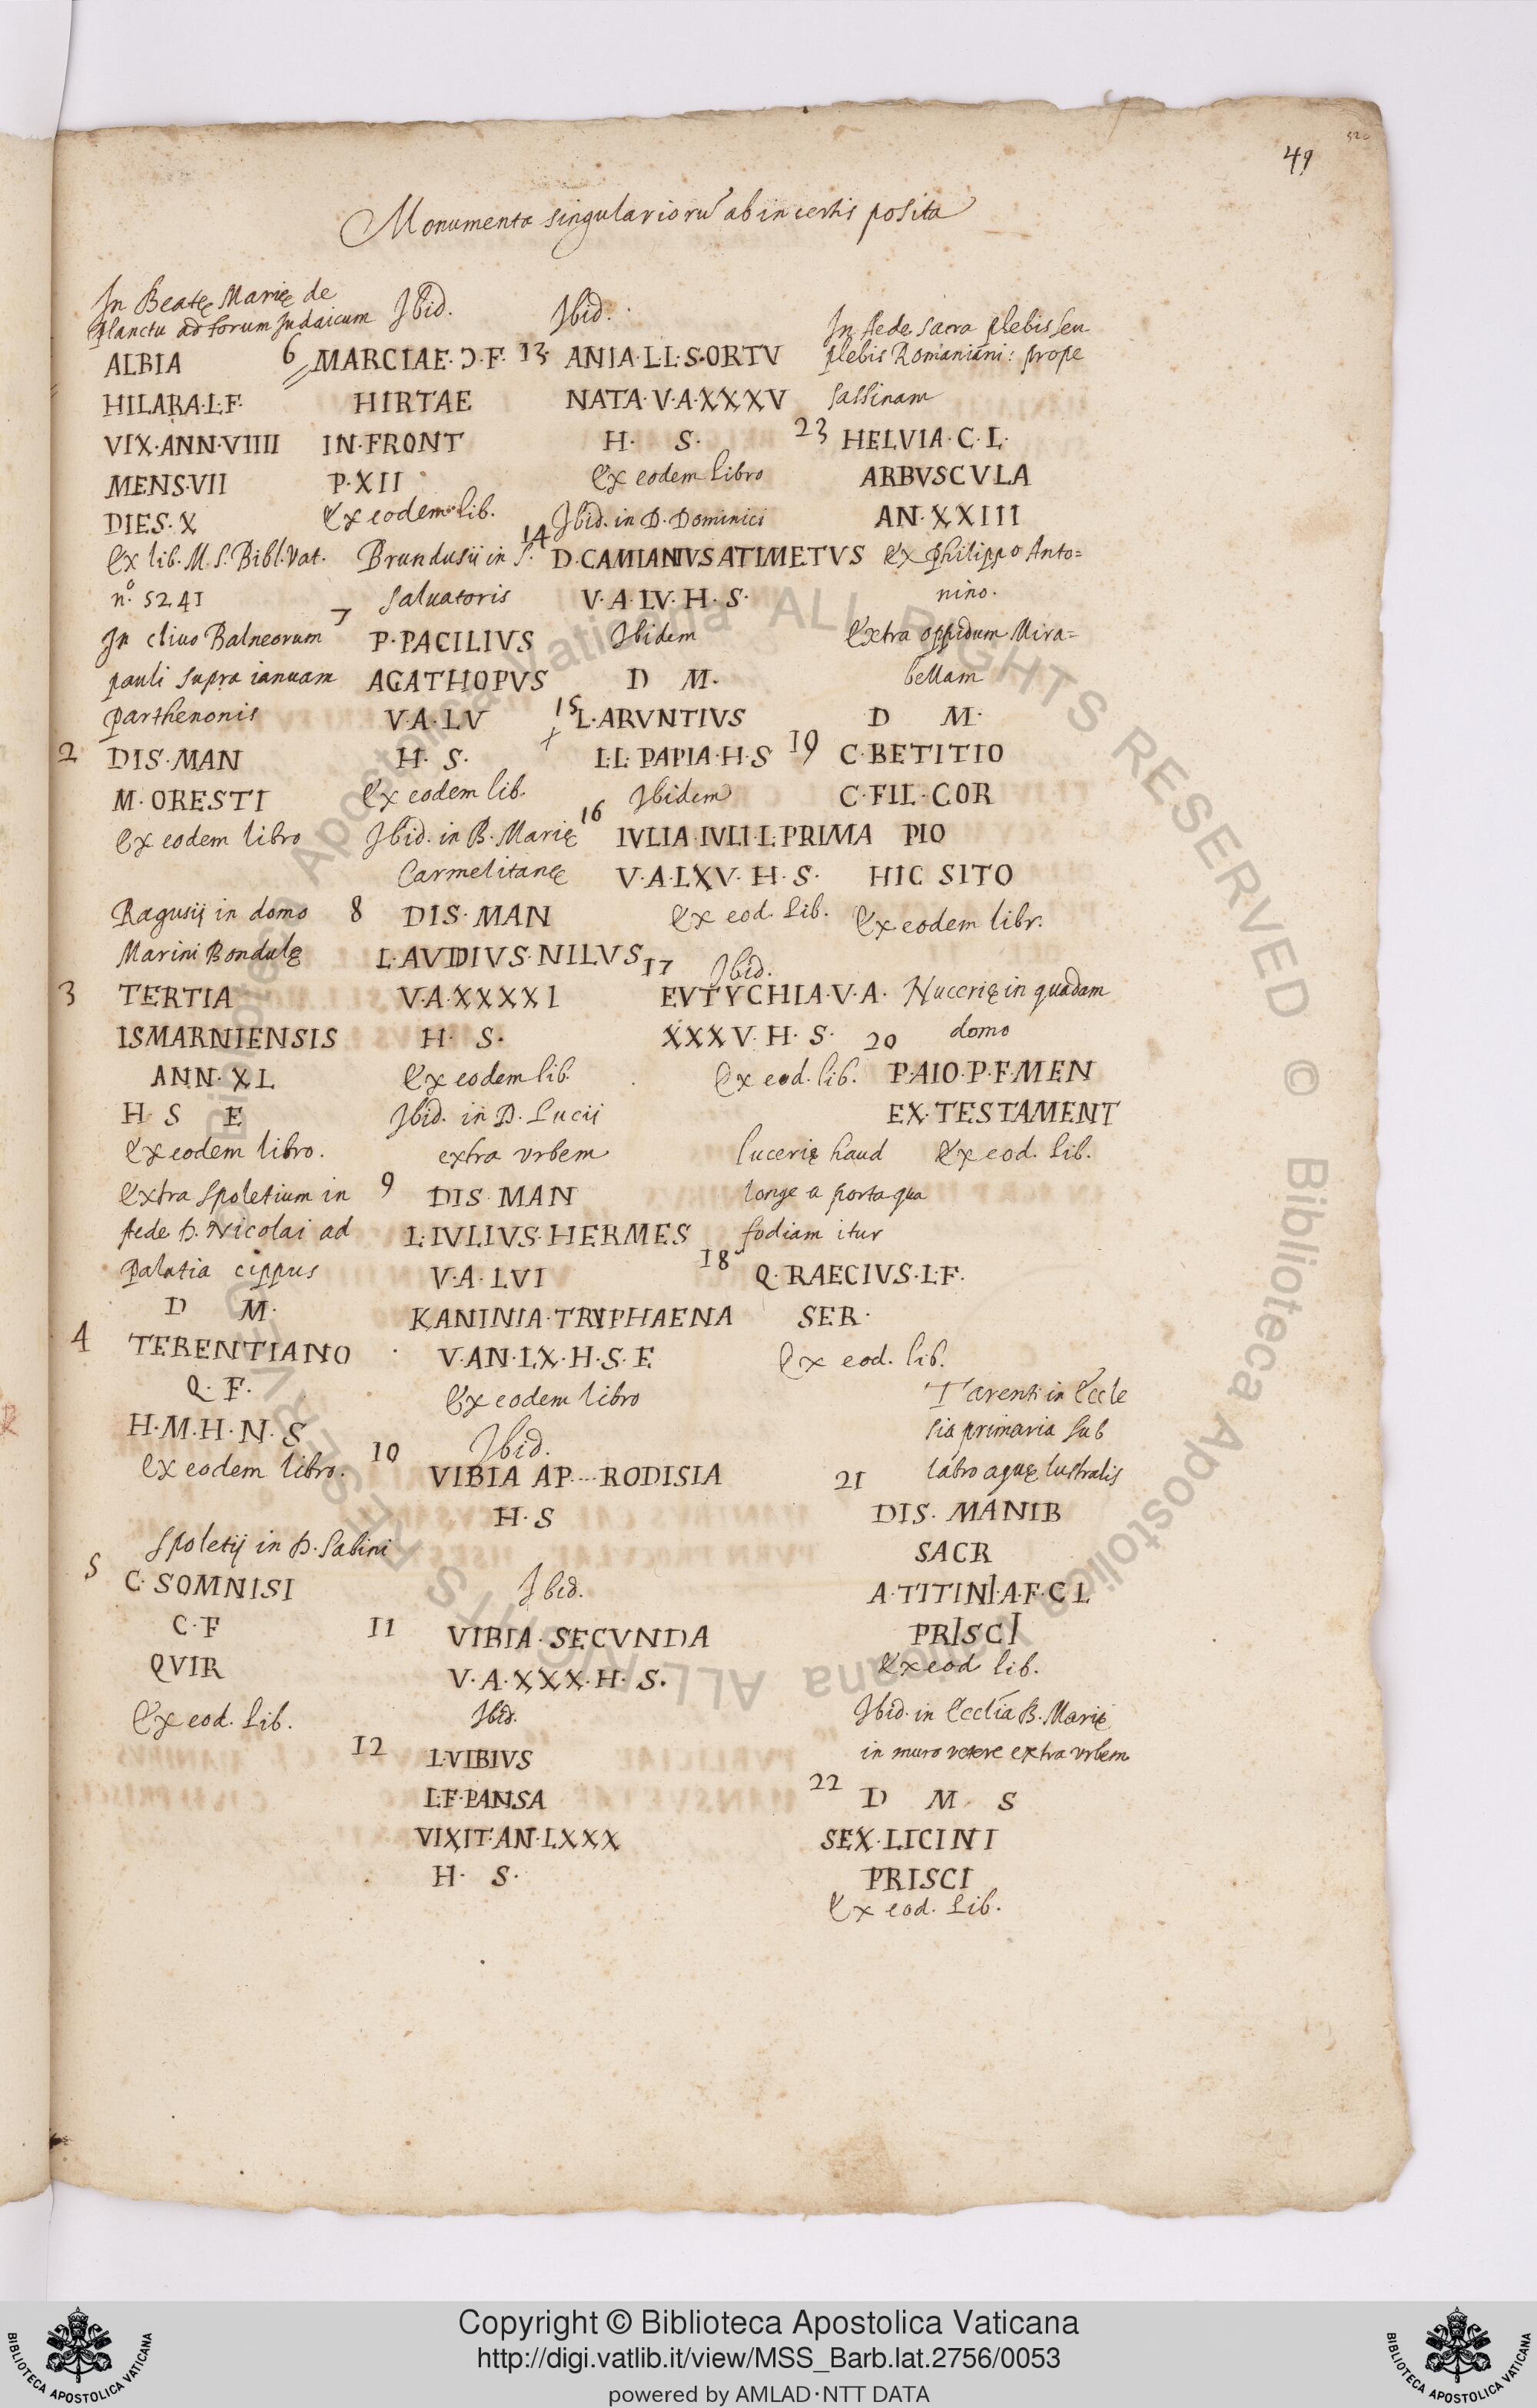 49
520
Monumenta singulariorũ ab incertis posita
In Beatę Marię de
planctu ad forum Judaicum
ALBIA
HILARA·L·F·
VIX·ANN·VIIII
MENS·VII
DIES·X
Ex lib. M.S. Bibl. Vat.
nº. 5241
In clivo Balneorum
pauli supra ianuam
Parthenonis
2 DIS·MAN
M·ORESTI
Ex eodem libro
Ragusij in domo
Marini Bondulę
3 TERTIA
ISMARNIENSIS
ANN·XL
H S E
Ex eodem libro.
Extra Spoletium in
Aede D. Nicolai ad
Palatia cippus
D M·
4 TERENTIANO
Q·F·
H·M·H·N·S
Ex eodem libro.
Spoletij in D. Sabini
5 C·SOMNISI
C·F
QVIR
Ex eod. Lib.
Ibid.
6 MARCIAE·Ɔ·F·
HIRTAE
IN·FRONT
P·XII
Ex eodem lib.
Brundusii in S.
Salvatoris
7 P·PACILIVS
AGATHOPVS
V·A·LV
H·S·
Ex eodem lib.
Ibid. in B. Marię
Carmelitanę
8 DIS·MAN
L·AVDIVS·NILVS
V·A·XXXXI
H· S·
Ex eodem lib.
Ibid. in D. Lucii
extra urbem
9 DIS MAN
L·IVLIVS·HERMES
V·A·LVI
KANINIA·TRYPHAENA
V·AN·LX·H·S·E
Ex eodem libro
10 Ibid.
VIBIA AP----RODISIA
H·S
Ibid.
11 VIBIA·SECVNDA
V·A·XXX·H·S·
Ibid.
12 L·VIBIVS
L·F·PANSA
VIXIT·AN·LXXX
H· S·
Ibid.
13 ANIA·L·L·S·ORTV
NATA·V·A·XXXV
H· S·
Ex eodem libro
Ibid. in D. Dominici
14 D·CAMIANIVS ATIMETVS
V·A·LV·H·S·
Ibidem
D M·
15 L·ARVNTIVS
+ L·L·PAPIA·H·S
Ibidem
16 IVLIA·IVLI·L·PRIMA
V·A·LXV·H·S·
Ex eod. Lib.
17 Ibid.
EVTYCHIA·V·A·
XXXV·H·S·
Ex eod. lib.
Lucerię haud
longe a porta qua
fodiam itur
18 Q·RAECIVS·L·F·
SER·
Ex eod. lib.
In Aede sacra plebis seu
plebis Romaniani: prope
Sassinam
23 HELVIA·C·L·
ARBVSCVLA
AN·XXIII
Ex Philippo Anto=
nino.
Extra oppidum Mira=
bellam
D M·
19 C·BETITIO
C·FIL·COR
PIO
HIC SITO
Ex eodem libr.
Nucerię in quadam
20 domo
P·AIO·P·F·MEN
EX·TESTAMENT
Ex eod. Lib.
Tarenti in Eccle
sia primaria sub
21 labro aquę lustralis
DIS·MANIB
SACR
A·TITINI·A·F·C L
PRISCI
Ex eod lib.
Ibid. in Ecclia B. Marię
in muro vetere extra urbem
22 D M S
SEX·LICINI
PRISCI
Ex eod. Lib.
Biblioteca Apostolica Vaticana ALL RIGHTS RESERVED © Biblioteca Apostolica Vaticana ALL RIGHTS RESERVED ©
BIBLIOTECA APOSTOLICA VATICANA
Copyright © Biblioteca Apostolica Vaticana
http://digi.vatlib.it/view/MSS_Barb.lat.2756/0053
powered by AMLAD·NTT DATA
BIBLIOTECA APOSTOLICA VATICANA